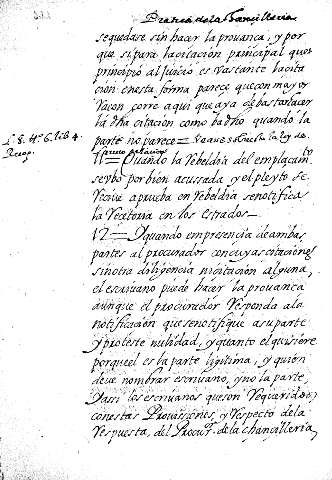 Practica de la Chancilleria
sequedase sin hacer la prouança, y por
que si para la citacion principal que es
principio al Juicio es vastante la cita
cion en esta forma parece que con mayor
raçon corre aqui que aya de bastar hacer
la dha citacion como ba dho quando la
parte no parece = 
l. 8. tt.º 6. lib 4
Recop.
11 = Quando la Rebeldia del emplaçam.to
se ybo por bien acussada y el pleyto se
Reciue a prueba en Rebeldia se notifica
la Recetoria en los estrados _
12 = Y quando en presencia de ambas
partes al procurador con cuyas citaciones
sin otra diligencia ni citacion alguna,
el escriuano puede hacer la prouança
aunque el procurador Responda a la
notificacion que se notifique a su parte
y proteste nulidad, y quanto el quisiere
porque el es la parte lixitima, y quien
deue nombrar escriuano, y no la parte,
Y assi los escriuanos que son Requeridos
con estas Prouissiones, y Respecto de la
Respuesta, del Procur.r de la chancilleria